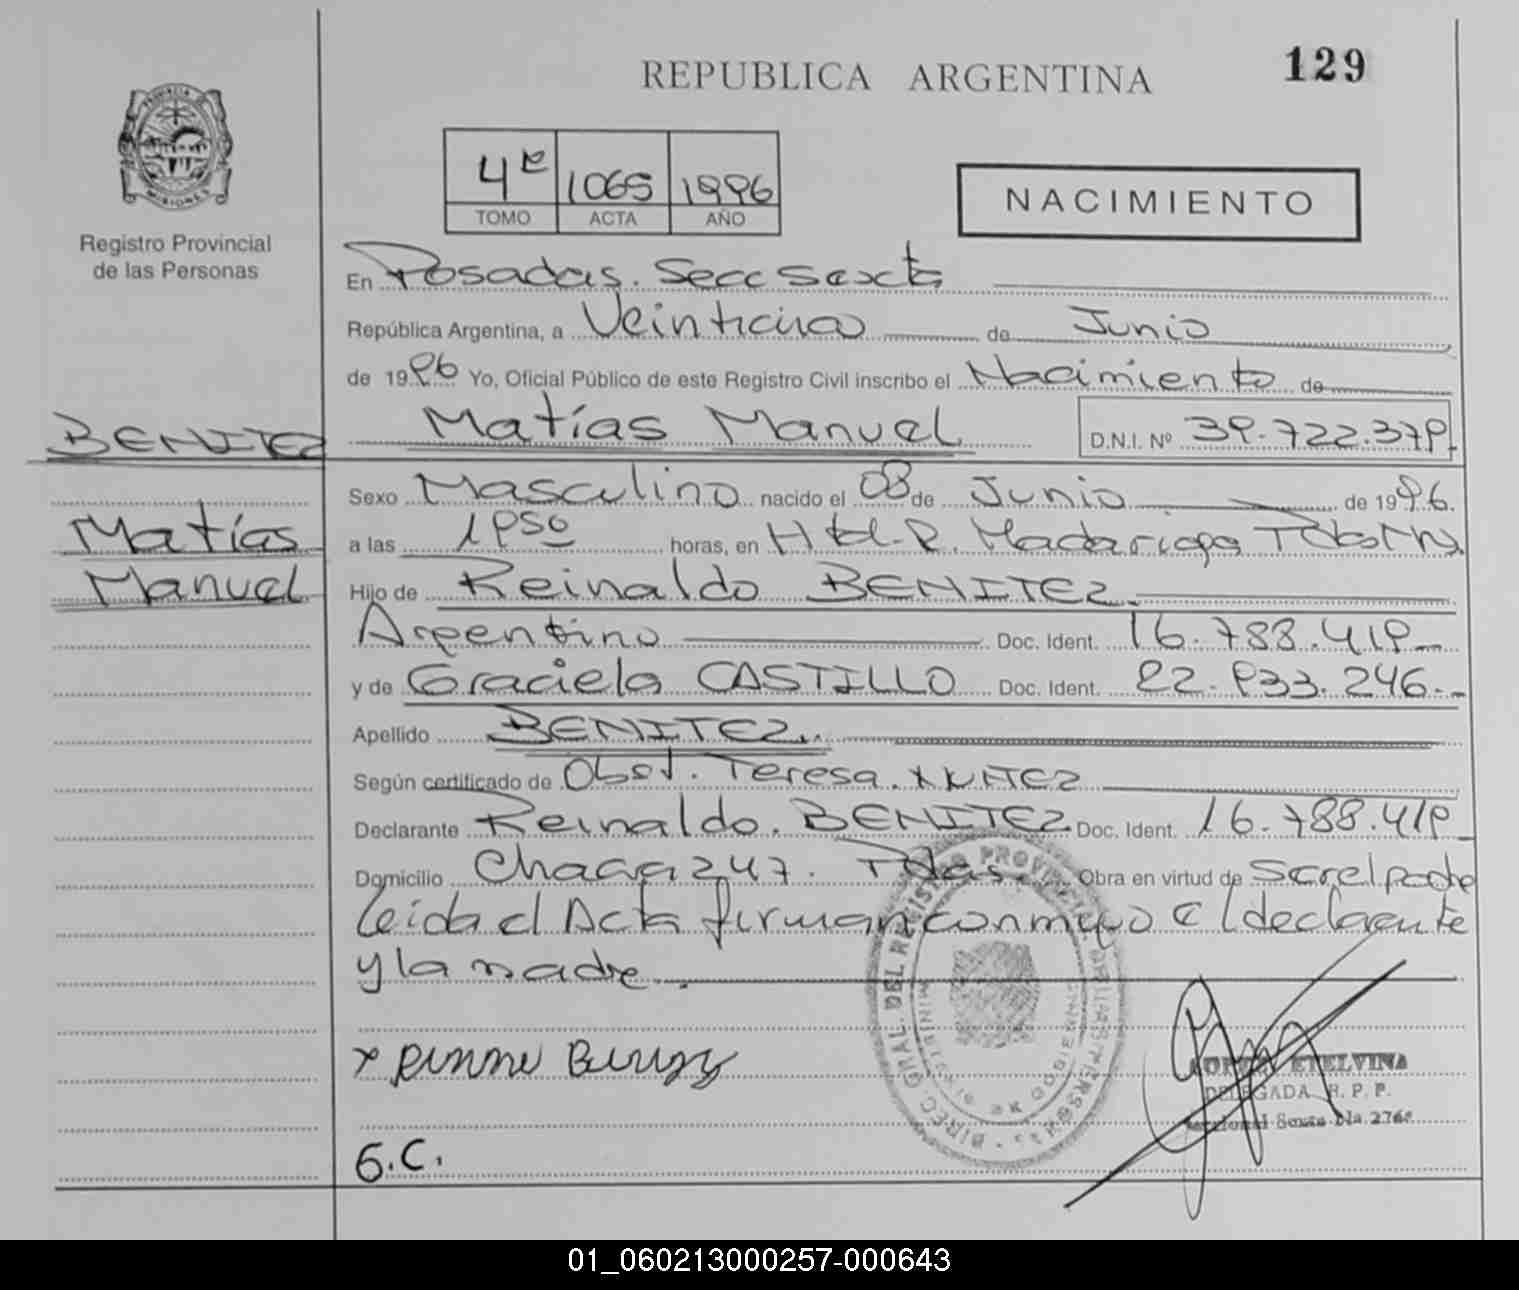 REPUBLICA ARGENTINA
129
PROVINCIA DE
MISIONES
Registro Provincial
de las Personas
4º 1065 1996
TOMO ACTA AÑO
NACIMIENTO
En Posadas. Secc Sexta
República Argentina, a Veinticinco de Junio
de 1996 Yo, Oficial Público de este Registro Civil inscribo el Nacimiento de
BENITEZ Matías Manuel D.N.I. Nº 39.722.379
Sexo Masculino nacido el 08 de Junio de 1996.
Matías
a las 1950 horas, en Htal. R. Madariaga Pdas Ms.
Manuel
Hijo de Reinaldo BENITEZ
Argentino Doc. Ident. 16.788.419
y de Graciela CASTILLO Doc. Ident. 22.933.246
Apellido BENITEZ
Según certificado de Obst. Teresa
Declarante Reinaldo. BENITEZ Doc. Ident. 16.788.419
Domicilio Chacra 247. Pdas. Obra en virtud de Ser el padre
Leida el Acta firman conmigo el declarante
y la madre.
DIREC. GRAL. DEL REGISTRO PROVINCIAL DE LAS PERSONAS
MINISTERIO DE GOBIERNO
x
G.C.
ETELVINA
DELEGADA R. P. P.
01_060213000257-000643